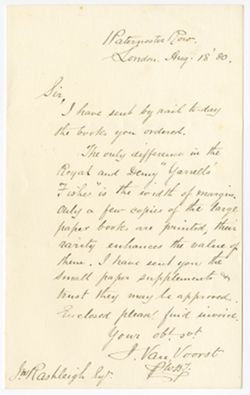 Paternoster Row.
London. Aug. 18 '80.
Sir,
I have sent by rail to-day
the books you ordered.
The only difference in the
Royal and Demy "Yarrell's
Fishes" is the width of margin.
Only a few copies of the large
paper book are printed, their
rarity enhances the value of
them. I have sent you the
small paper supplements &
trust they may be approved.
Enclosed please find invoice.
Your obt. svt.
J. Van Voorst
Rashleigh Esqr.